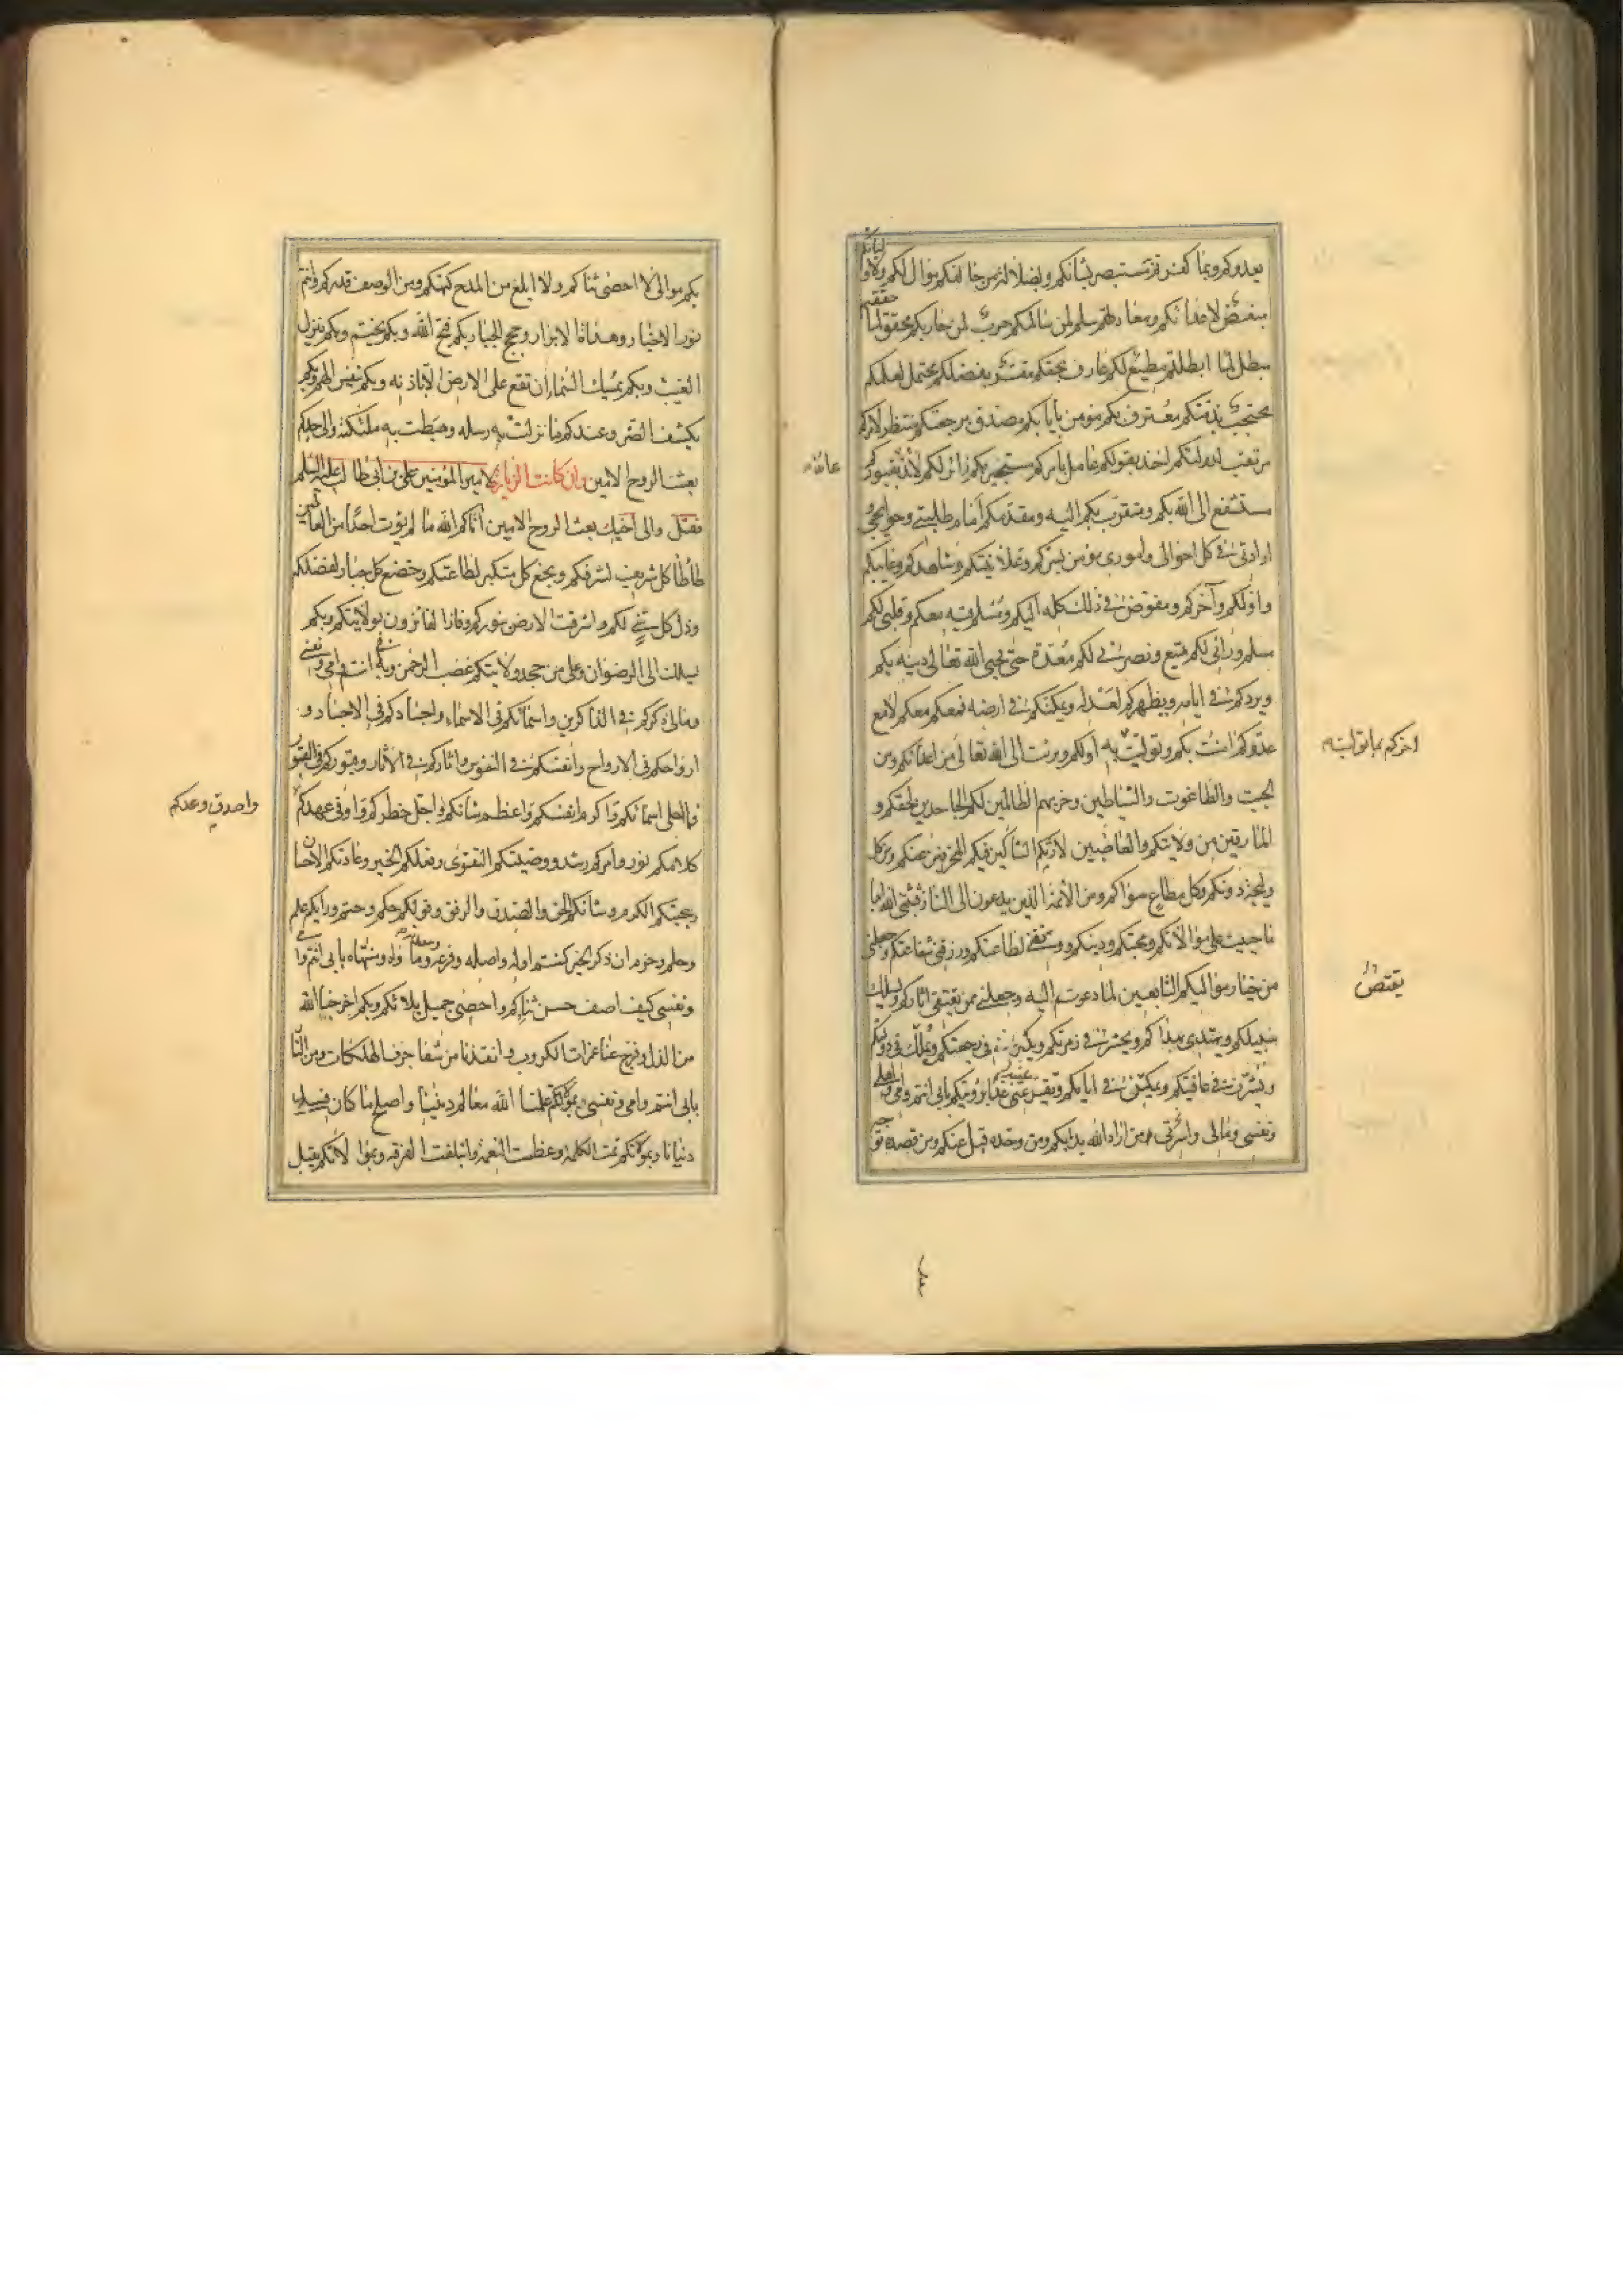 بعدوكم وبما كفرتم به مستبصر بشأنكم وبضلالة من خالفكم موال لكم ولاوليائكم
مبغض لاعدائكم ومعاد لهم سلم لمن سالمكم حرب لمن حاربكم محقق لما حققتم
مبطل لما ابطلتم مطيع لكم عارف بحقكم مقر بفضلكم محتمل لعلمكم
محتجب بذمتكم معترف بكم مؤمن بايابكم مصدق برجعتكم منتظر لامركم
مرتقب لدولتكم اخذ بقولكم عامل بامركم مستجير بكم زائر لكم لائذ بقبوركم
عائذ
مستشفع الى الله بكم ومتقرب بكم اليه ومقدمكم امام طلبتي وحوائجي و
ارادتي في كل احوالي واموري مؤمن بسركم وعلانيتكم وشاهدكم وغايبكم
واولكم وآخركم ومفوض في ذلك كله اليكم ومسلم فيه معكم وقلبي لكم
مسلم ورائي لكم متبع ونصرتي لكم معدة حتى يحيي الله تعالى دينه بكم
ويردكم في ايامه ويظهركم لعدله ويمكنكم في ارضه فمعكم معكم لا مع
عدوكم امنت بكم وتوليت به اولكم وبرئت الى الله تعالى من اعدائكم ومن
اخركم بما توليت به
الجبت والطاغوت والشياطين وحزبهم الظالمين لكم الجاحدين لحقكم و
المارقين من ولايتكم والغاصبين لارثكم الشاكين فيكم المنحرفين عنكم ومن كل
وليجة دونكم وكل مطاع سواكم ومن الأئمة الذين يدعون الى النار فثبتني الله ابدا
ما حييت على موالاتكم ومحبتكم ودينكم ووفقني لطاعتكم ورزقني شفاعتكم وجعلني
من خيار مواليكم التابعين لما دعوتم اليه وجعلني ممن يقتفي اثاركم ويسلك
يقتص
سبيلكم ويهتدي بهداكم ويحشر في زمرتكم ويكر في رجعتكم ويملك في دولتكم
ويشرف في عافيتكم ويمكن في ايامكم وتقر عينه غدا برؤيتكم بابي انتم وامي واهلي
ونفسي ومالي واسرتي من اراد الله بدا بكم ومن وحده قبل عنكم ومن قصده توجه
بكم موالي لا احصي ثناكم ولا ابلغ من المدح كنهكم ومن الوصف قدركم وانتم
نور الاخيار وهداة الابرار وحجج الجبار بكم فتح الله وبكم يختم وبكم ينزل
الغيث وبكم يمسك السماء ان تقع على الارض الا باذنه وبكم ينفس الهم وبكم
يكشف الضر وعندكم ما نزلت به رسله وهبطت به ملئكته والى جدكم
بعث الروح الامين وان كانت الزيارة لامير المؤمنين علي بن ابي طالب عليه السلم
فقل والى اخيك بعث الروح الامين آتاكم الله ما لم يؤت احدا من العالمين
طأطأ كل شريف لشرفكم وبخع كل متكبر لطاعتكم وخضع كل جبار لفضلكم
وذل كل شئ لكم واشرقت الارض بنوركم وفاز الفائزون بولايتكم وبكم
يسلك الى الرضوان وعلى من جحد ولايتكم غضب الرحمن بابي انتم وامي ونفسي
ومالي ذكركم في الذاكرين واسمائكم في الاسماء واجسادكم في الاجساد و
ارواحكم في الارواح وانفسكم في النفوس واثاركم في الآثار وقبوركم في القبور
فما احلى اسمائكم واكرم انفسكم واعظم شأنكم واجل خطركم واوفى عهدكم
واصدق وعدكم
كلامكم نور وامركم رشد ووصيتكم التقوى وفعلكم الخير وعادتكم الاحسان
وسجيتكم الكرم وشأنكم الحق والصدق والرفق وقولكم حكم وحتم ورايكم علم
وحلم وحزم ان ذكر الخير كنتم اوله واصله وفرعه ومعدنه وماواه ومنتهاه بابي انتم وامي
ونفسي كيف اصف حسن ثنائكم واحصي جميل بلائكم وبكم اخرجنا الله
من الذل وفرج عنا غمرات الكروب وانقذنا من شفا جرف الهلكات ومن النار
بابي انتم وامي ونفسي بموالاتكم علمنا الله معالم ديننا واصلح ما كان فسد من
دنيانا وبموالاتكم تمت الكلمة وعظمت النعمة وائتلفت الفرقة وبموالاتكم يقبل